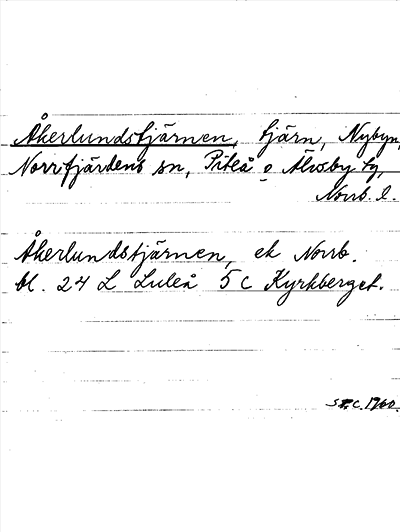 Åkerlundstjärnen, tjärn, Nybyn,
Norrfjärdens sn, Piteå o Älvsby tg,
Norrb. l.
Åkerlundstjärnen, ek Norrb.
bl. 24 L Luleå 5 C Kyrkberget.
1960.